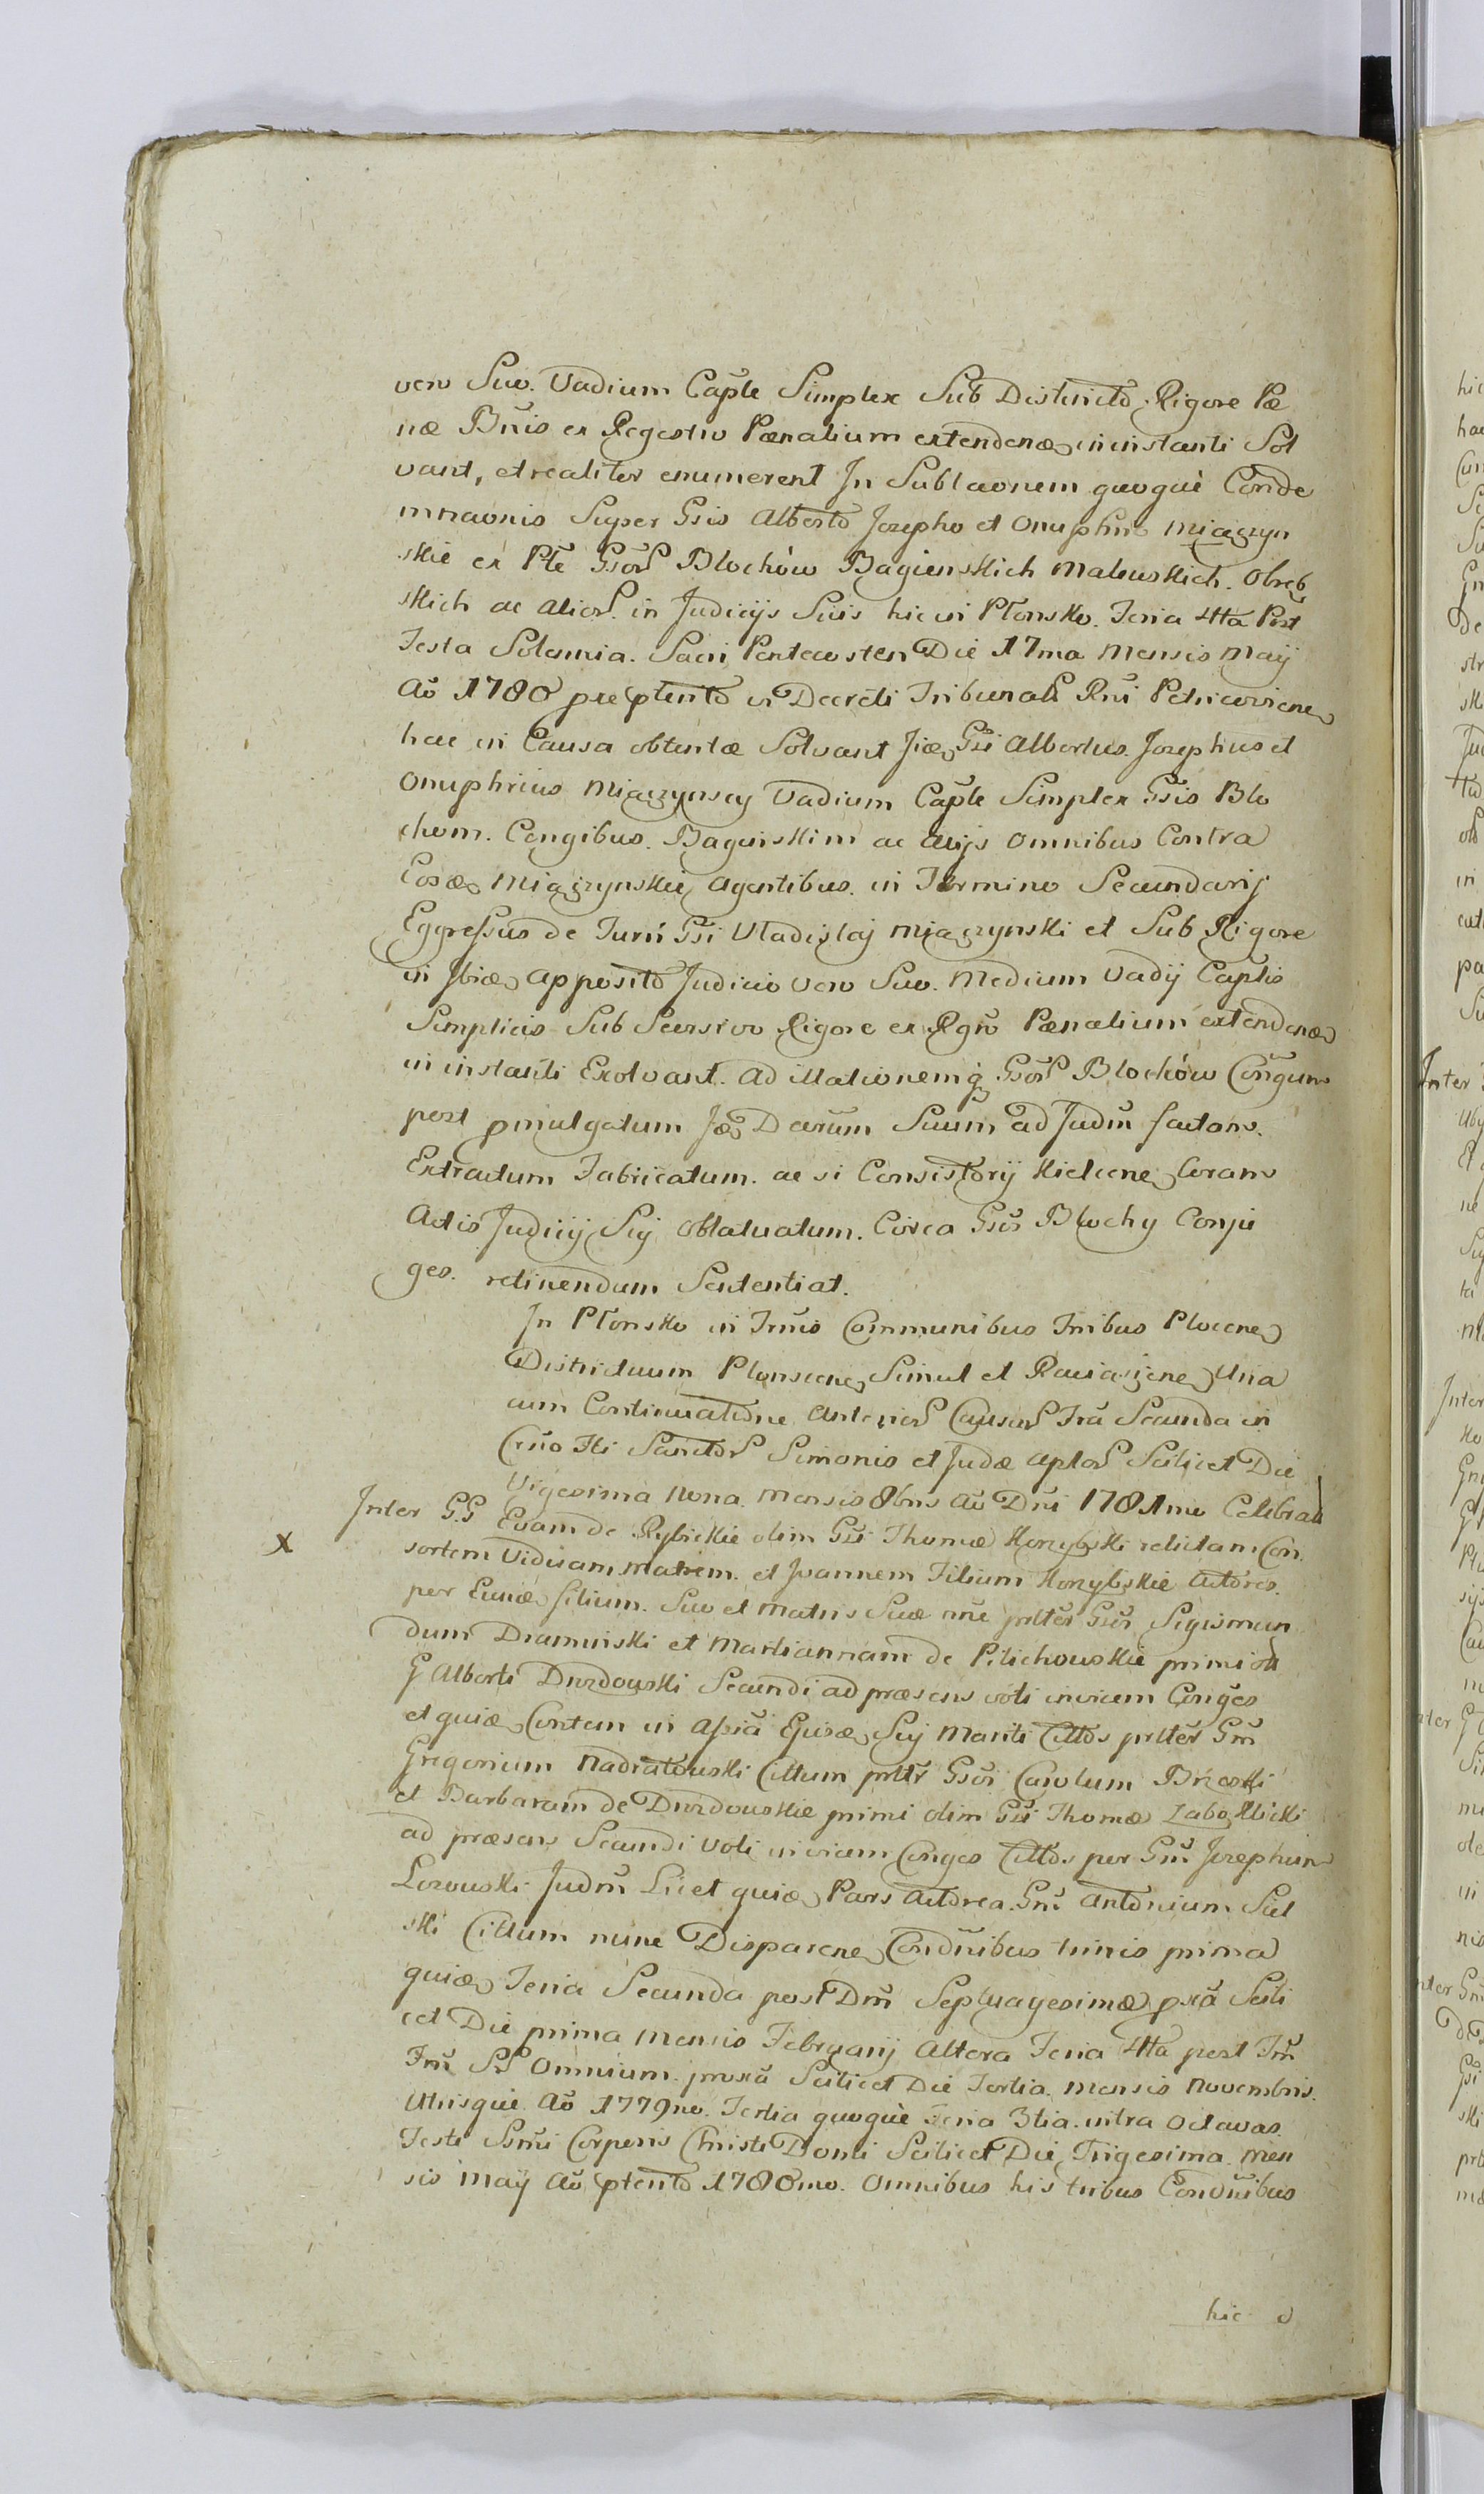 vero Suo. Vadium Caple Simplex Sub Districto Rigore Pæ
næ Bnis ex Regestro Pænalium extendenæ, in instanti Sol
vant, et realiter enumerent In Sublaonem quoquè Conde
mnaonis Super Gsis Alberto Josepho et Onuphrio Miączyn
skie ex Pte Gsor Blochów Bagienskich Maluskich. Obręb
skich ac alior. in Judicijs Suis hic in Płonsko. Feria 4ta Post
Festa Solemnia. Sacri Pentecosten Die 17ma Mensis Maij
Aō 1780 præptento in Decreti Tribunal Rni Petricoviene
hac in Causa obtentæ Solvant Jiæ, Gsi Albertus. Josephus et
Onuphrius Miączynscy Vadium Caple Simplex Gsis Blo
chom. Congibus. Baginskim ac alijs Omnibus Contra
Eosæ, Miączynskie, Agentibus. in Termino Secundarij
Eggressus de Turri Gsi Vladislaj Miączynski et Sub Rigore
in Ibiæ, apposito Judicio vero Suo. Medium Vadij Caplis
Simplicis Sub Seersivo Rigore ex Rgro Pænalium extendenæ
in instanti Exolvant. Ad illationemq Gsor Blochów Congum
post pmulgatum Jæ, Decrum Suum ad Judm factam.
Extractum Fabricatum. ac si Consistorij Kielcene, Coram
Actis Judicij Sij Oblatuatum. Circa Gsos Blochy Conju
ges. retinendum Sententiat.
In Płonsko in Trmis Communibus Tribus Plocene,
Districtuum Plonscene, Simul et Raciązene, Una
cum Continuatione Anterior Causar Fra Secunda in
Crno Fti Sanctor Simonis et Judæ Aplor Scilicet Die
Vigesima Nona. Mensis 8bris Aō Dni 1781mo Celebrat
Inter G.G Evam de Rybickie olim Gsi Thomæ Korzybski relictam Con
X
sortem Viduam Matrem. et Joannem Filium Korzybskie Actores.
per Eunæ, filium. Suo et Matris Suæ nne prltes Gsos Sigismun
dum Dramiński et Mariannam de Pilichowskie primi oli
G Alberti Drozdowski Secundi ad præsens voti invicem Conges
et quiæ, Contem in Assia Ejusæ, Sij Mariti Cittos prltes Gm
Grigorium Nadratowski Cittum prltr Gsos Carolum Brzeski
et Barbaram de Drozdowskie primi olim Gsi Thomæ Zaboklicki
ad præsens Secundi Voti invicem Conges Cittos per Gm Josephum
Lozowski Judm Licet quiæ, Pars Actorea. Gm Antonium Siel
ski Cittum nunc Disparene, Condnibus trinis prima
quiæ, Feria Secunda post Dm Septuagesimæ pxa Scili
cet Die prima Mensis Februarij Altera Feria 4ta post Fm
Fm SS Omnium. proxa Scilicet Die Tertia. Mensis Novembris.
Utrisquè. Aō 1779no. Tertia quoquè Feria 3tia. intra Octavas.
Festi Ssmi Corporis Christi Domi Scilicet Die, Trigesima. Men
sis Maij Aō ptento 1780mo. Omnibus his tribus Condnibus
hic